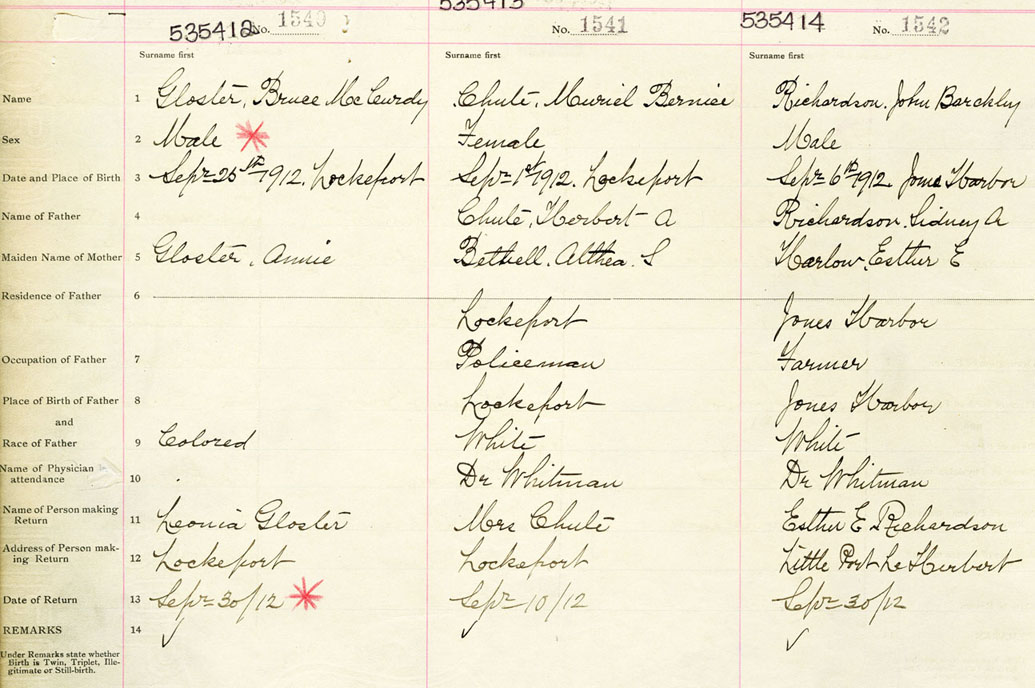 535413
535412 No. 1540 No. 1541 535414 No. 1542
Surname first Surname first Surname first
Name 1 Gloster, Bruce McCurdy Chute, Muriel Bernice Richardson, John Barckley
Sex 2 Male Female Male
Date and Place of Birth 3 Sept 25th 1912. Lockeport Sept 1st 1912. Lockeport Sept 6th 1912. Jones Harbor
Name of Father 4 Chute, Herbert A Richardson, Sidney A
Maiden Name of Mother 5 Gloster, Annie Bethell, Althea. S Harlow, Esther E
Residence of Father 6
Lockeport Jones Harbor
Occupation of Father 7 Policeman Farmer
Place of Birth of Father 8 Lockeport Jones Harbor
and
Race of Father 9 Colored White White
Name of Physician in
attendance 10 Dr Whitman Dr Whitman
Name of Person making
Return 11 Leonia Gloster Mrs Chute Esther E Richardson
Address of Person mak-
ing Return 12 Lockeport Lockeport Little Port Le Herbert
Date of Return 13 Sept 30/12 Sept 10/12 Sept 30/12
REMARKS 14
Under Remarks state whether
Birth is Twin, Triplet, Ille-
gitimate or Still-birth.